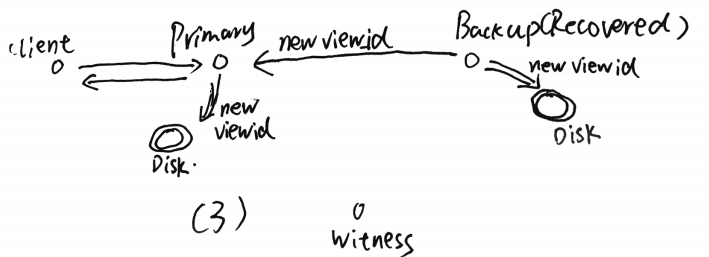 Client
Primary
new viewid
Backup(Recovered)
new viewid
new
viewid
Disk.
Disk
(3)
Witness